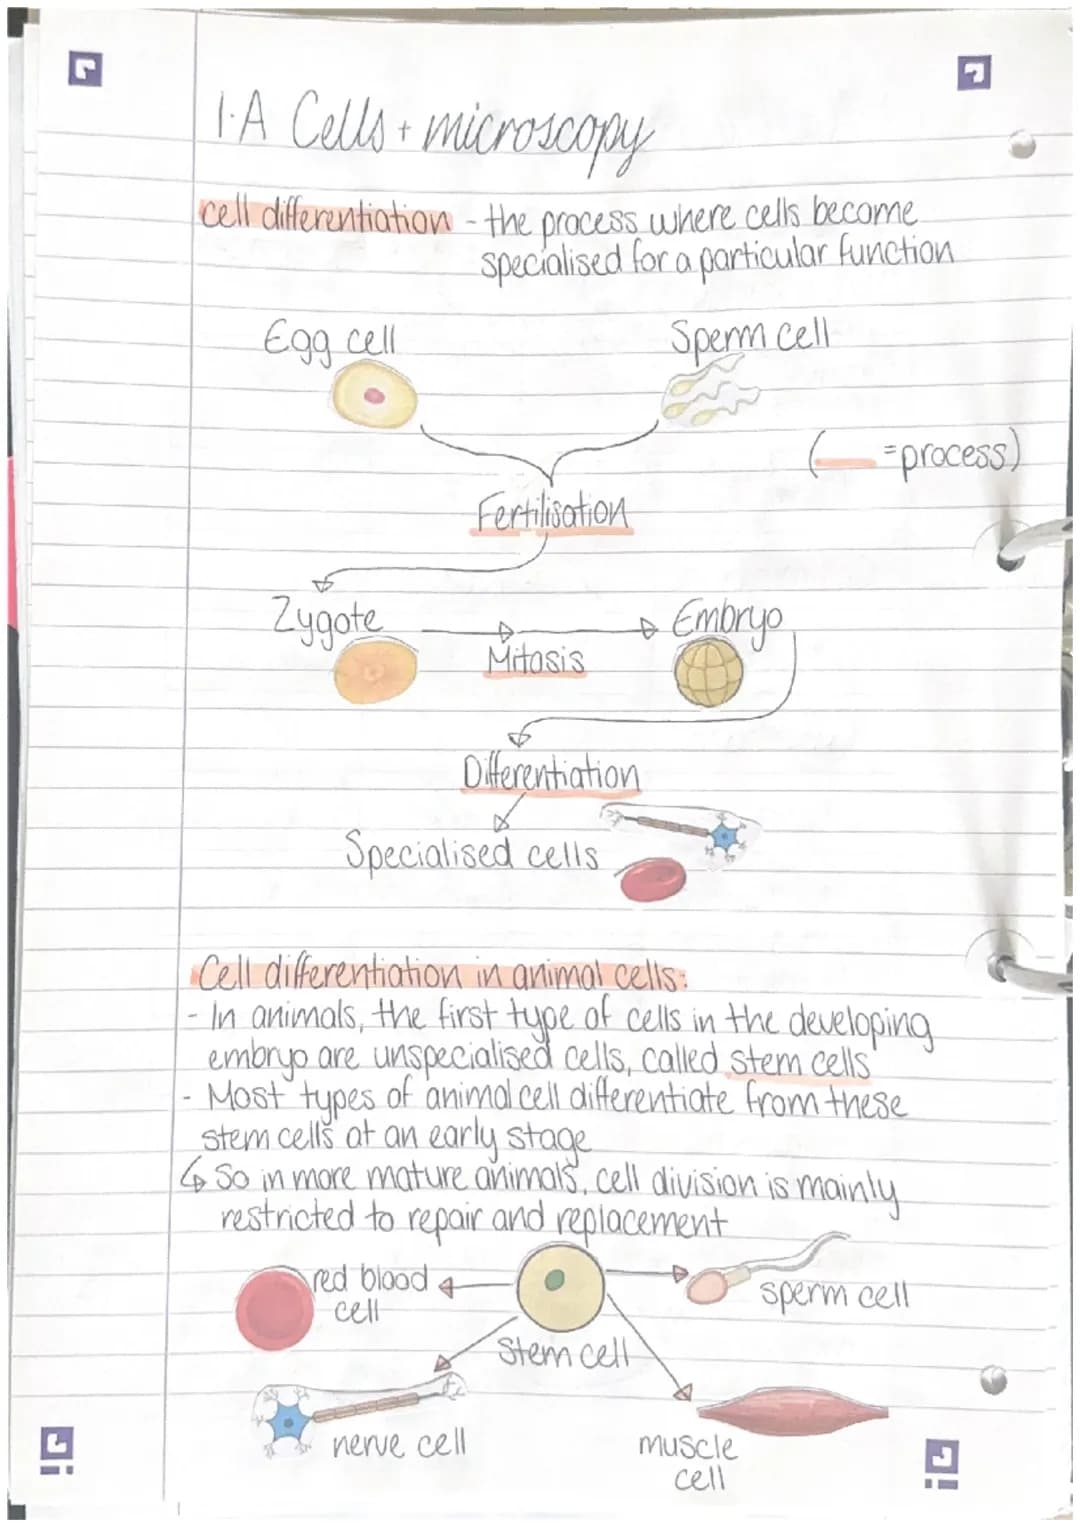 1.A Cells + microscopy
cell differentiation - the process where cells become
specialised for a particular function
Egg cell
Sperm cell
( = process)
Fertilisation
Zygote
Embryo
Mitosis
Differentiation
Specialised cells
Cell differentiation in animal cells:
- In animals, the first type of cells in the developing
embryo are unspecialised cells, called stem cells
- Most types of animal cell differentiate from these
stem cells at an early stage
↳ So in more mature animals, cell division is mainly
restricted to repair and replacement
red blood
cell
sperm cell
Stem cell
nerve cell
muscle
cell